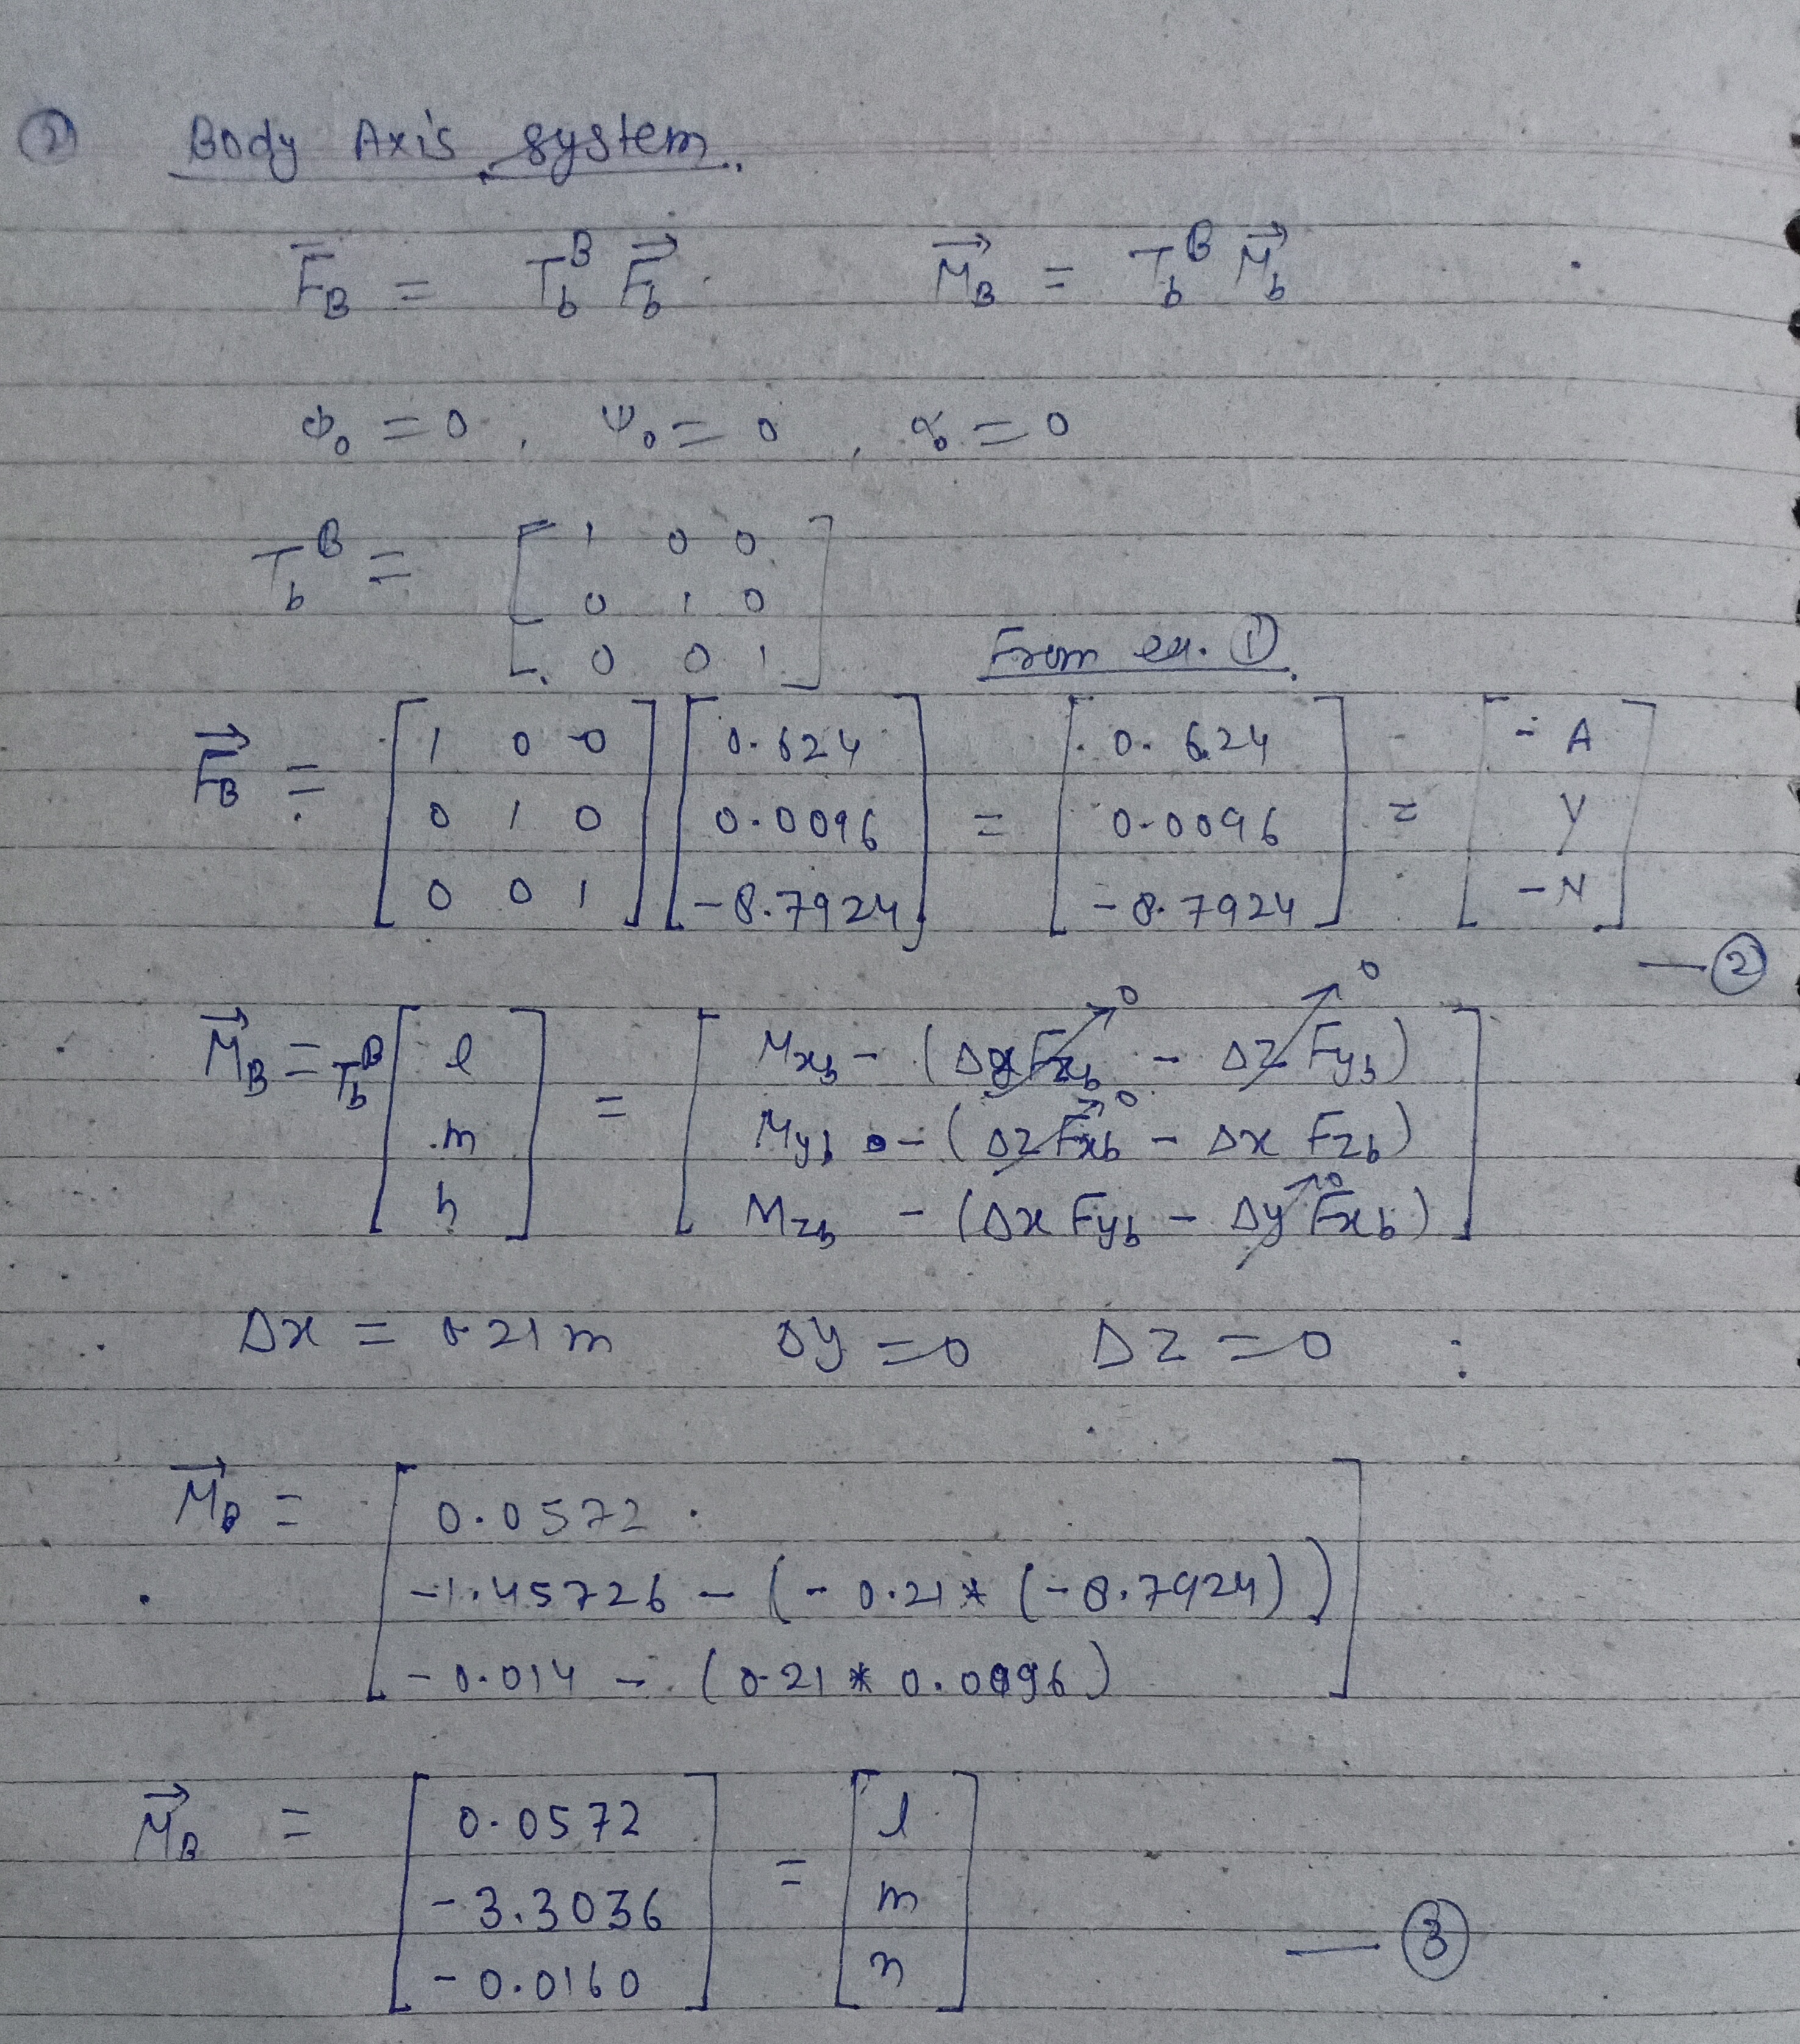 ② Body Axis system.
F_B = T_b^B F_b M_B = T_b^B M_b
ϕ₀ = 0, ψ₀ = 0, = 0
T_b^B = [ 1 0 0
0 1 0
0 0 1 ] From eq. ①
F_B = [ 1 0 0 ] [ 0.624 ] = [ 0.624 ] = [ - A ]
[ 0 1 0 ] [ 0.0096 ] [ 0.0096 ] [ Y ]
[ 0 0 1 ] [ -8.7924 ] [ -8.7924 ] [ - N ]
— ②
M_B = T_b^B [ l ] = [ M_xb - (Δy F_zb → 0 - Δz F_yb → 0) ]
[ m ] [ M_yb - (Δz F_xb → 0 - Δx F_zb) ]
[ n ] [ M_zb - (Δx F_yb - Δy F_xb → 0) ]
Δx = 0.21 m Δy = 0 Δz = 0
M_B = [ 0.0572
-1.45726 - (-0.21 * (-8.7924))
-0.014 - (0.21 * 0.0096) ]
M_B = [ 0.0572 ] = [ l ]
[ -3.3036 ] [ m ] — ③
[ -0.0160 ] [ n ]